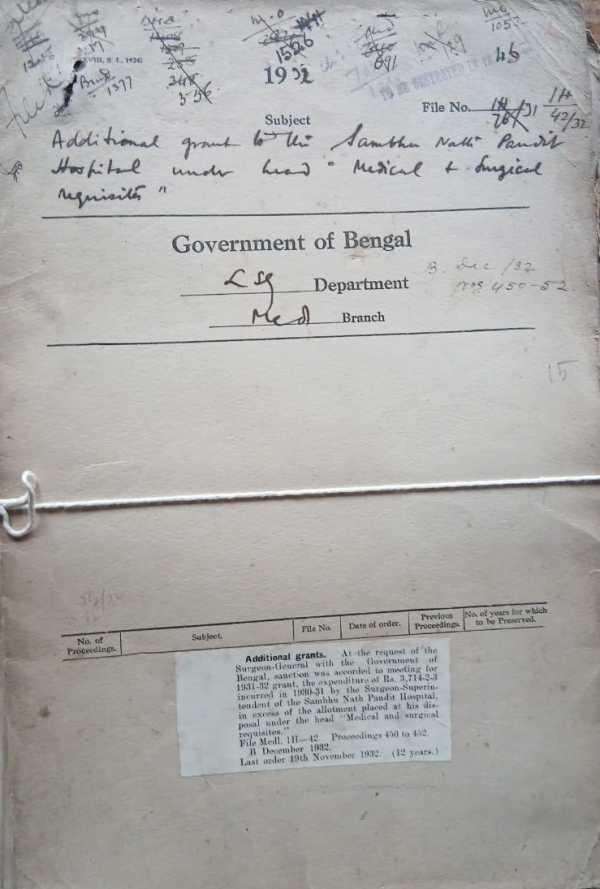 M.O
1526
1932
46
TO BE DESTROYED IN
1377
Subject
File No. 1H/42/32
Additional grant to the Sambhu Nath Pandit
Hospital under head "Medical & Surgical
requisites"
Government of Bengal
LSG Department
Med Branch
B. Dec/32
Nos 450-52.
15
No. of Proceedings.
Subject.
File No.
Date of order.
Previous Proceedings.
No. of years for which to be Preserved.
Additional grants. At the request of the
Surgeon-General with the Government of
Bengal, sanction was accorded to meeting for
1931-32 grant, the expenditure of Rs. 3,714-2-3
incurred in 1930-31 by the Surgeon-Superin-
tendent of the Sambhu Nath Pandit Hospital,
in excess of the allotment placed at his dis-
posal under the head "Medical and surgical
requisites."
File Medl. 1H—42 Proceedings 450 to 452.
B December 1932.
Last order 19th November 1932. (12 years.)